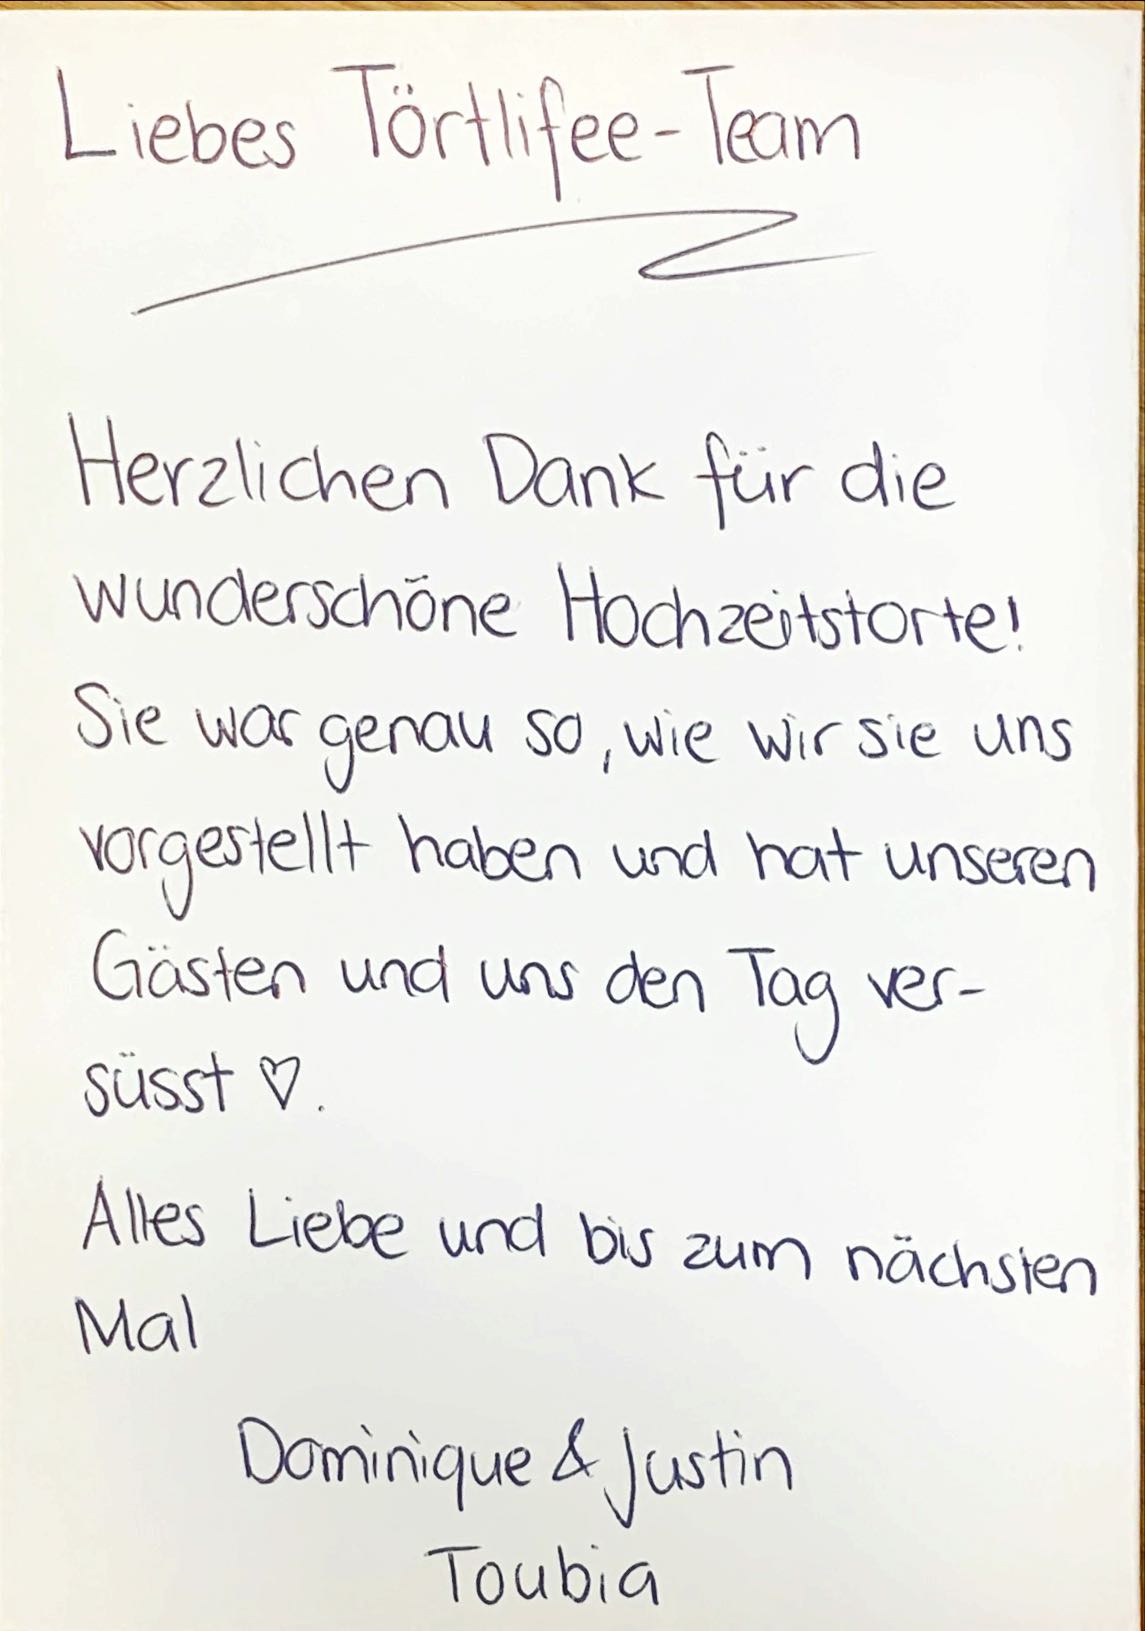 Liebes Törtlifee-Team
Herzlichen Dank für die
wunderschöne Hochzeitstorte!
Sie war genau so, wie wir sie uns
vorgestellt haben und hat unseren
Gästen und uns den Tag ver-
süsst ♡.
Alles Liebe und bis zum nächsten
Mal
Dominique & Justin
Toubia